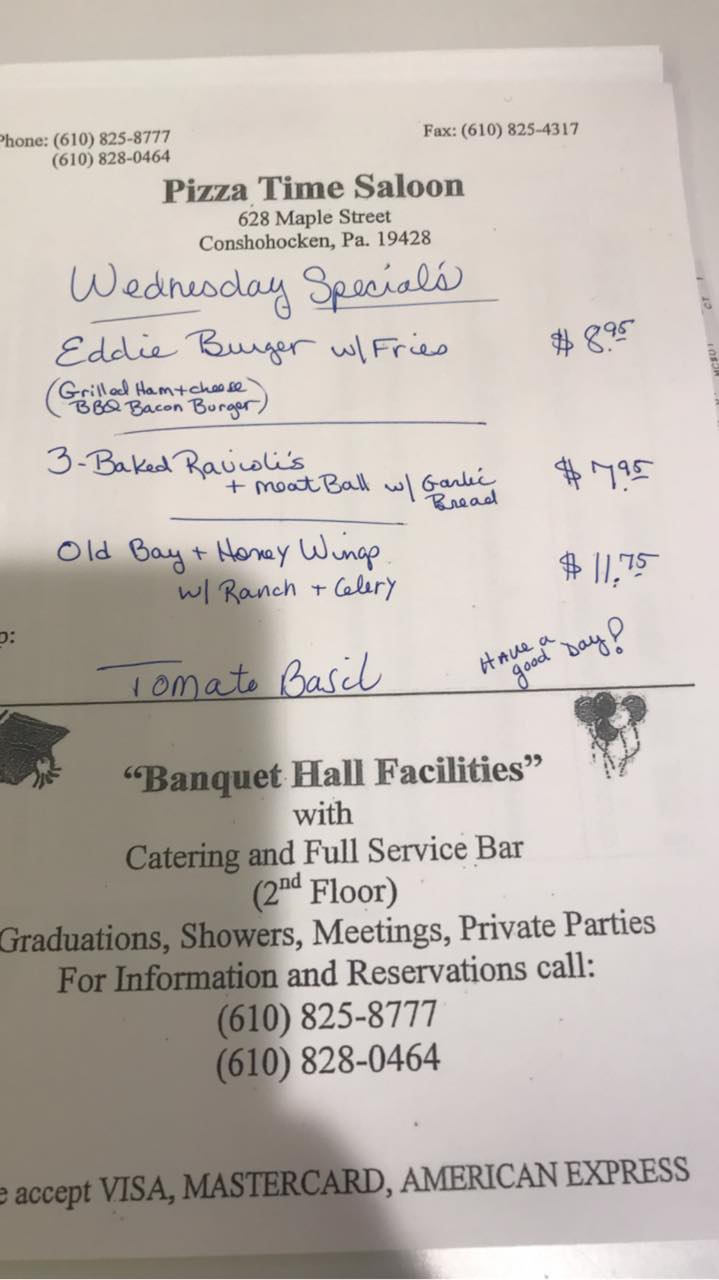 Phone: (610) 825-8777
Fax: (610) 825-4317
(610) 828-0464
Pizza Time Saloon
628 Maple Street
Conshohocken, Pa. 19428
Wednesday Special's
Eddie Burger w/ Fries $8.95
(Grilled Ham + cheese
BBQ Bacon Burger)
3-Baked Ravioli's
+ meat Ball w/ Garlic Bread $7.95
Old Bay + Honey Wings
w/ Ranch + Celery $11.75
p:
Tomato Basil
Have a good Day!
“Banquet Hall Facilities”
with
Catering and Full Service Bar
(2nd Floor)
Graduations, Showers, Meetings, Private Parties
For Information and Reservations call:
(610) 825-8777
(610) 828-0464
e accept VISA, MASTERCARD, AMERICAN EXPRESS